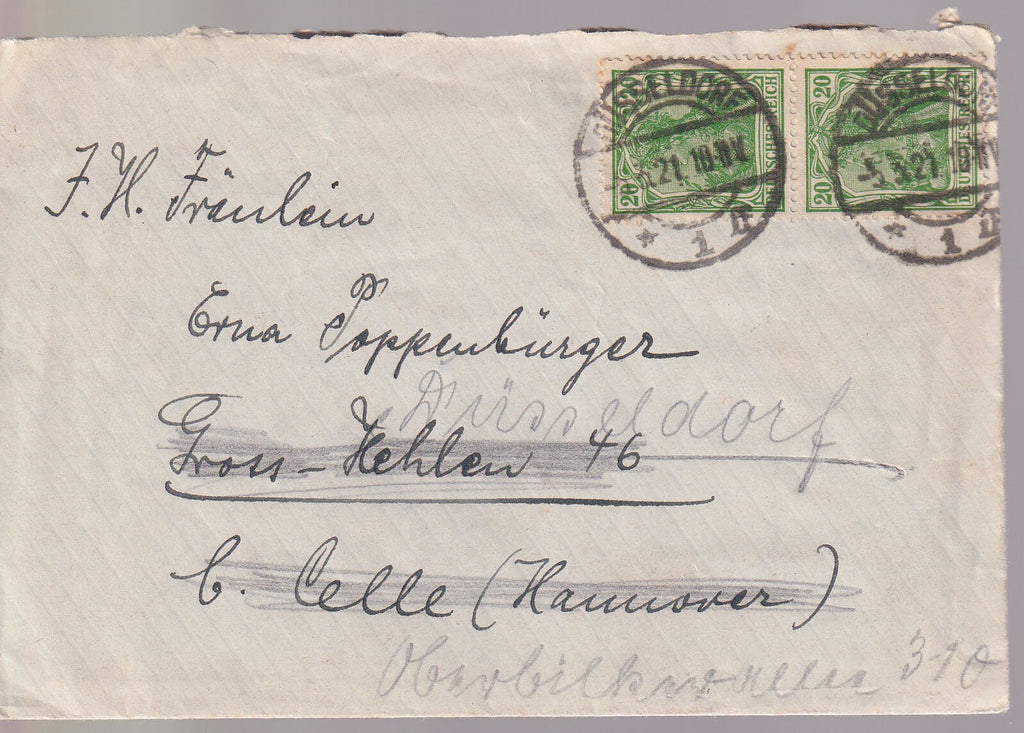 20 DEUTSCHES REICH 20
20 DEUTSCHES REICH 20
DÜSSELDORF
-5.3.21. 10-11V.
* 1 n
DÜSSELDORF
-5.3.21. 10-11V.
* 1 n
F. H. Fräulein
Erna Poppenbürger
Düsseldorf
Gross-Hehlen 46
b. Celle (Hannover)
Oberbilkerallee 310